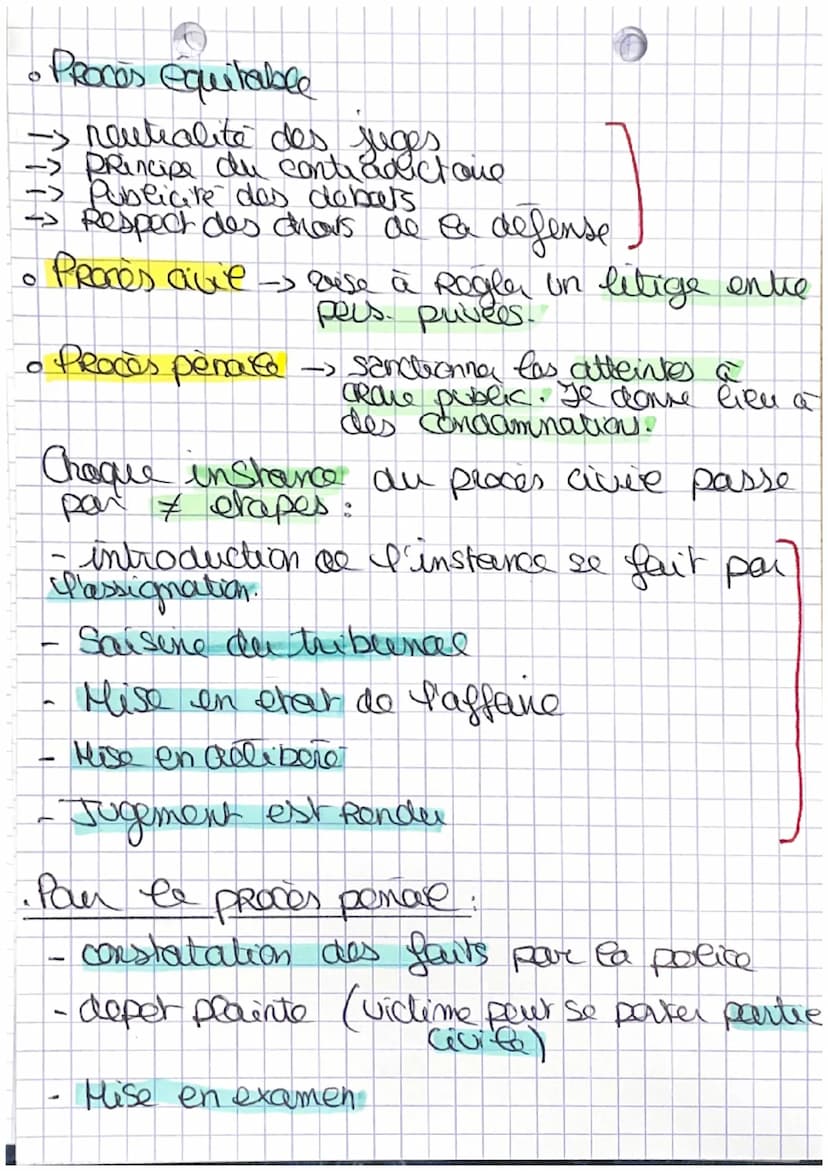 • Procès équitable
-> neutralité des juges
-> principe du contradictoire
-> Publicité des débats
-> Respect des droits de la défense
• Procès civil -> vise à Régler un litige entre
pers. privées.
• Procès pénale -> sanctionner les atteintes à
ordre public. Il donne lieu à
des condamnation.
Chaque instance du procès civil passe
par ≠ etapes :
- introduction de l'instance se fait par
l'assignation.
- Saisine du tribunal
- Mise en etat de l'affaire
- Mise en délibéré
- Jugement est Rendu
. Pour le procès pénal :
- constatation des faits par la police
- depot plainte (victime peut se porter partie
civile)
- Mise en examen